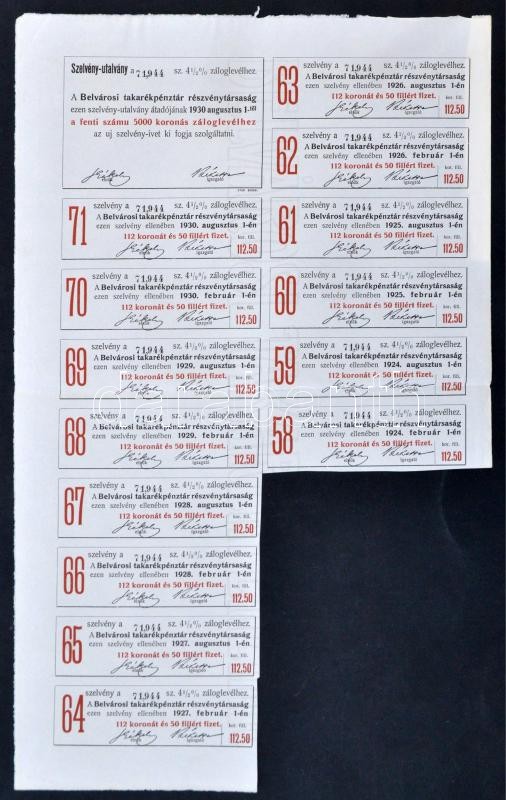 Szelvény-utalvány a 71,944 sz. 4½% záloglevélhez.
A Belvárosi takarékpénztár részvénytársaság
ezen szelvény-utalvány átadójának 1930 augusztus 1-től
a fenti számu 5000 koronás záloglevélhez
az uj szelvény-ivet ki fogja szolgáltatni.
igazgató
71 szelvény a 71,944 sz. 4½% záloglevélhez.
A Belvárosi takarékpénztár részvénytársaság
ezen szelvény ellenében 1930. augusztus 1-én
112 koronát és 50 fillért fizet. kor. fill.
elnök igazgató 112.50
70 szelvény a 71,944 sz. 4½% záloglevélhez.
A Belvárosi takarékpénztár részvénytársaság
ezen szelvény ellenében 1930. február 1-én
112 koronát és 50 fillért fizet. kor. fill.
elnök igazgató 112.50
69 szelvény a 71,944 sz. 4½% záloglevélhez.
A Belvárosi takarékpénztár részvénytársaság
ezen szelvény ellenében 1929. augusztus 1-én
112 koronát és 50 fillért fizet. kor. fill.
112.50
68 szelvény a 71,944 sz. 4½% záloglevélhez.
A Belvárosi takarékpénztár részvénytársaság
ezen szelvény ellenében 1929. február 1-én
112 koronát és 50 fillért fizet. kor. fill.
elnök igazgató 112.50
67 szelvény a 71,944 sz. 4½% záloglevélhez.
A Belvárosi takarékpénztár részvénytársaság
ezen szelvény ellenében 1928. augusztus 1-én
112 koronát és 50 fillért fizet. kor. fill.
elnök igazgató 112.50
66 szelvény a 71,944 sz. 4½% záloglevélhez.
A Belvárosi takarékpénztár részvénytársaság
ezen szelvény ellenében 1928. február 1-én
112 koronát és 50 fillért fizet. kor. fill.
elnök igazgató 112.50
65 szelvény a 71,944 sz. 4½% záloglevélhez.
A Belvárosi takarékpénztár részvénytársaság
ezen szelvény ellenében 1927. augusztus 1-én
112 koronát és 50 fillért fizet. kor. fill.
elnök igazgató 112.50
64 szelvény a 71,944 sz. 4½% záloglevélhez.
A Belvárosi takarékpénztár részvénytársaság
ezen szelvény ellenében 1927. február 1-én
112 koronát és 50 fillért fizet. kor. fill.
elnök igazgató 112.50
63 szelvény a 71,944 sz. 4½% záloglevélhez.
A Belvárosi takarékpénztár részvénytársaság
ezen szelvény ellenében 1926. augusztus 1-én
112 koronát és 50 fillért fizet. kor. fill.
elnök igazgató 112.50
62 szelvény a 71,944 sz. 4½% záloglevélhez.
A Belvárosi takarékpénztár részvénytársaság
ezen szelvény ellenében 1926. február 1-én
112 koronát és 50 fillért fizet. kor. fill.
elnök igazgató 112.50
61 szelvény a 71,944 sz. 4½% záloglevélhez.
A Belvárosi takarékpénztár részvénytársaság
ezen szelvény ellenében 1925. augusztus 1-én
112 koronát és 50 fillért fizet. kor. fill.
elnök igazgató 112.50
60 szelvény a 71,944 sz. 4½% záloglevélhez.
A Belvárosi takarékpénztár részvénytársaság
ezen szelvény ellenében 1925. február 1-én
112 koronát és 50 fillért fizet. kor. fill.
elnök igazgató 112.50
59 szelvény a 71,944 sz. 4½% záloglevélhez.
A Belvárosi takarékpénztár részvénytársaság
ezen szelvény ellenében 1924. augusztus 1-én
112 koronát és 50 fillért fizet. kor. fill.
112.50
58 szelvény a 71,944 sz. 4½% záloglevélhez.
A Belvárosi takarékpénztár részvénytársaság
ezen szelvény ellenében 1924. február 1-én
112 koronát és 50 fillért fizet. kor. fill.
elnök igazgató 112.50